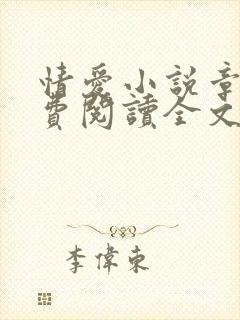 情愛小說章
費閱讀全文
李偉東